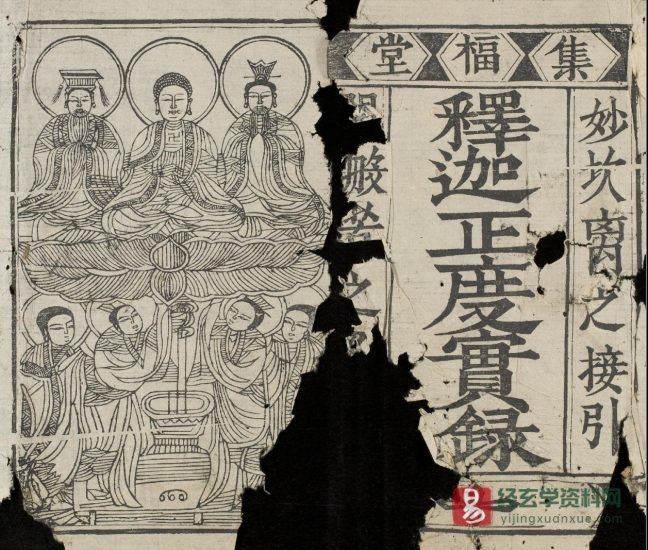 集福堂
妙坎離之接引
釋迦正度實録
般若之
易 经玄学资料网
yijingxuanxue.com